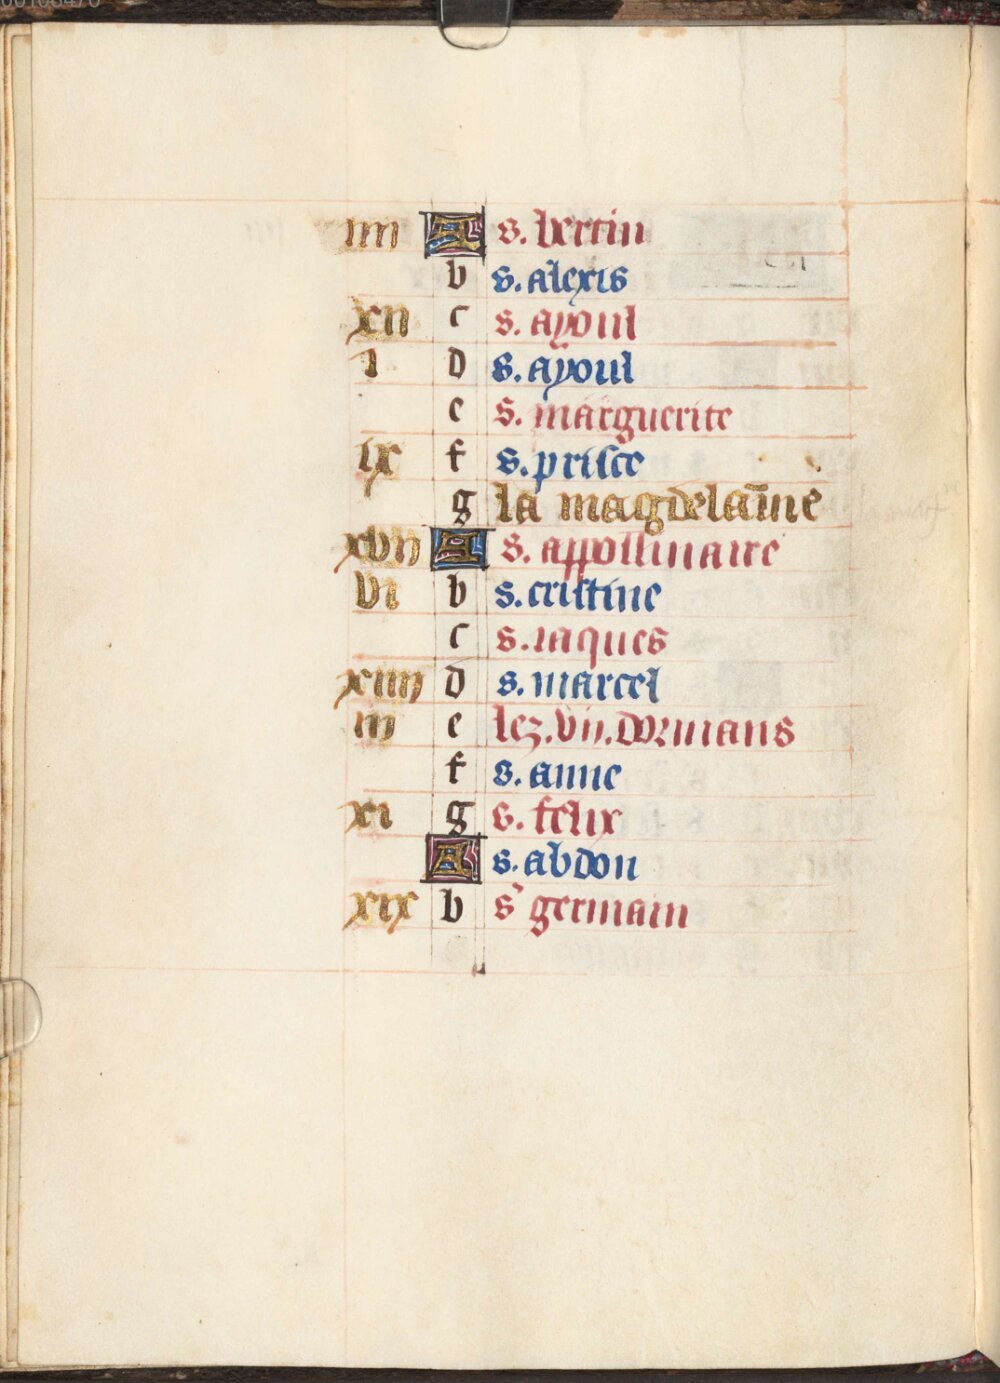 iiii A s. bertin
b s. alexis
xii c s. ayoul
i d s. ayoul
e s. marguerite
ix f s. prisce
g la magdelaine
xvii A s. appollinaire
vi b s. cristine
c s. iaques
xiiii d s. marcel
iii e lez. vii. dormans
f s. anne
xi g s. felix
A s. abdon
xix b s' germain